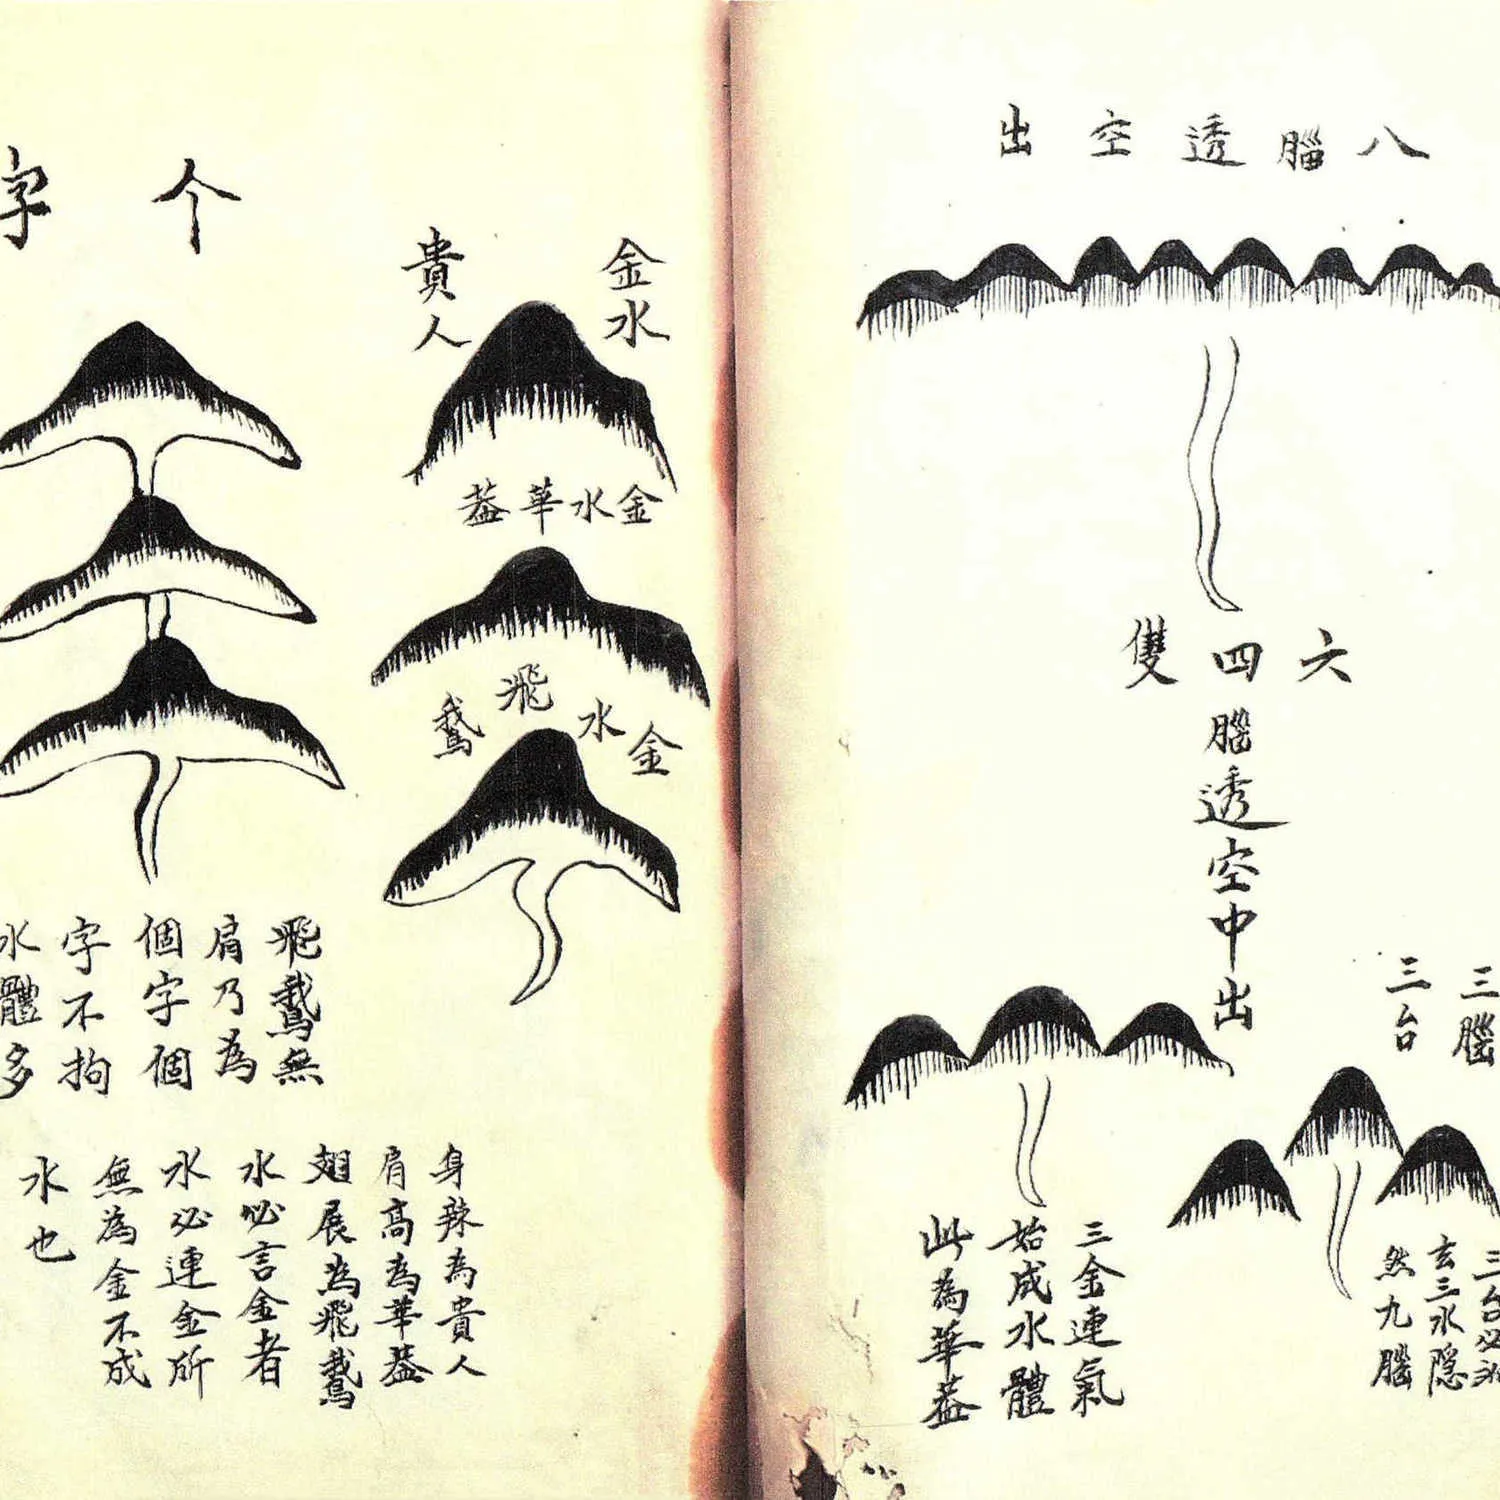 八腦透空出
六四雙
腦透空中出
三腦
三台
三金連氣
始成水體
此為華葢
三台必
玄三水隐
然九腦
金水
貴人
金水華葢
金水飛鵞
个字
飛鵞無
肩乃為
個字個
字不拘
水體多
身辣為貴人
肩高為華葢
翅展為飛鵞
水必言金者
水必連金所
無為金不成
水也